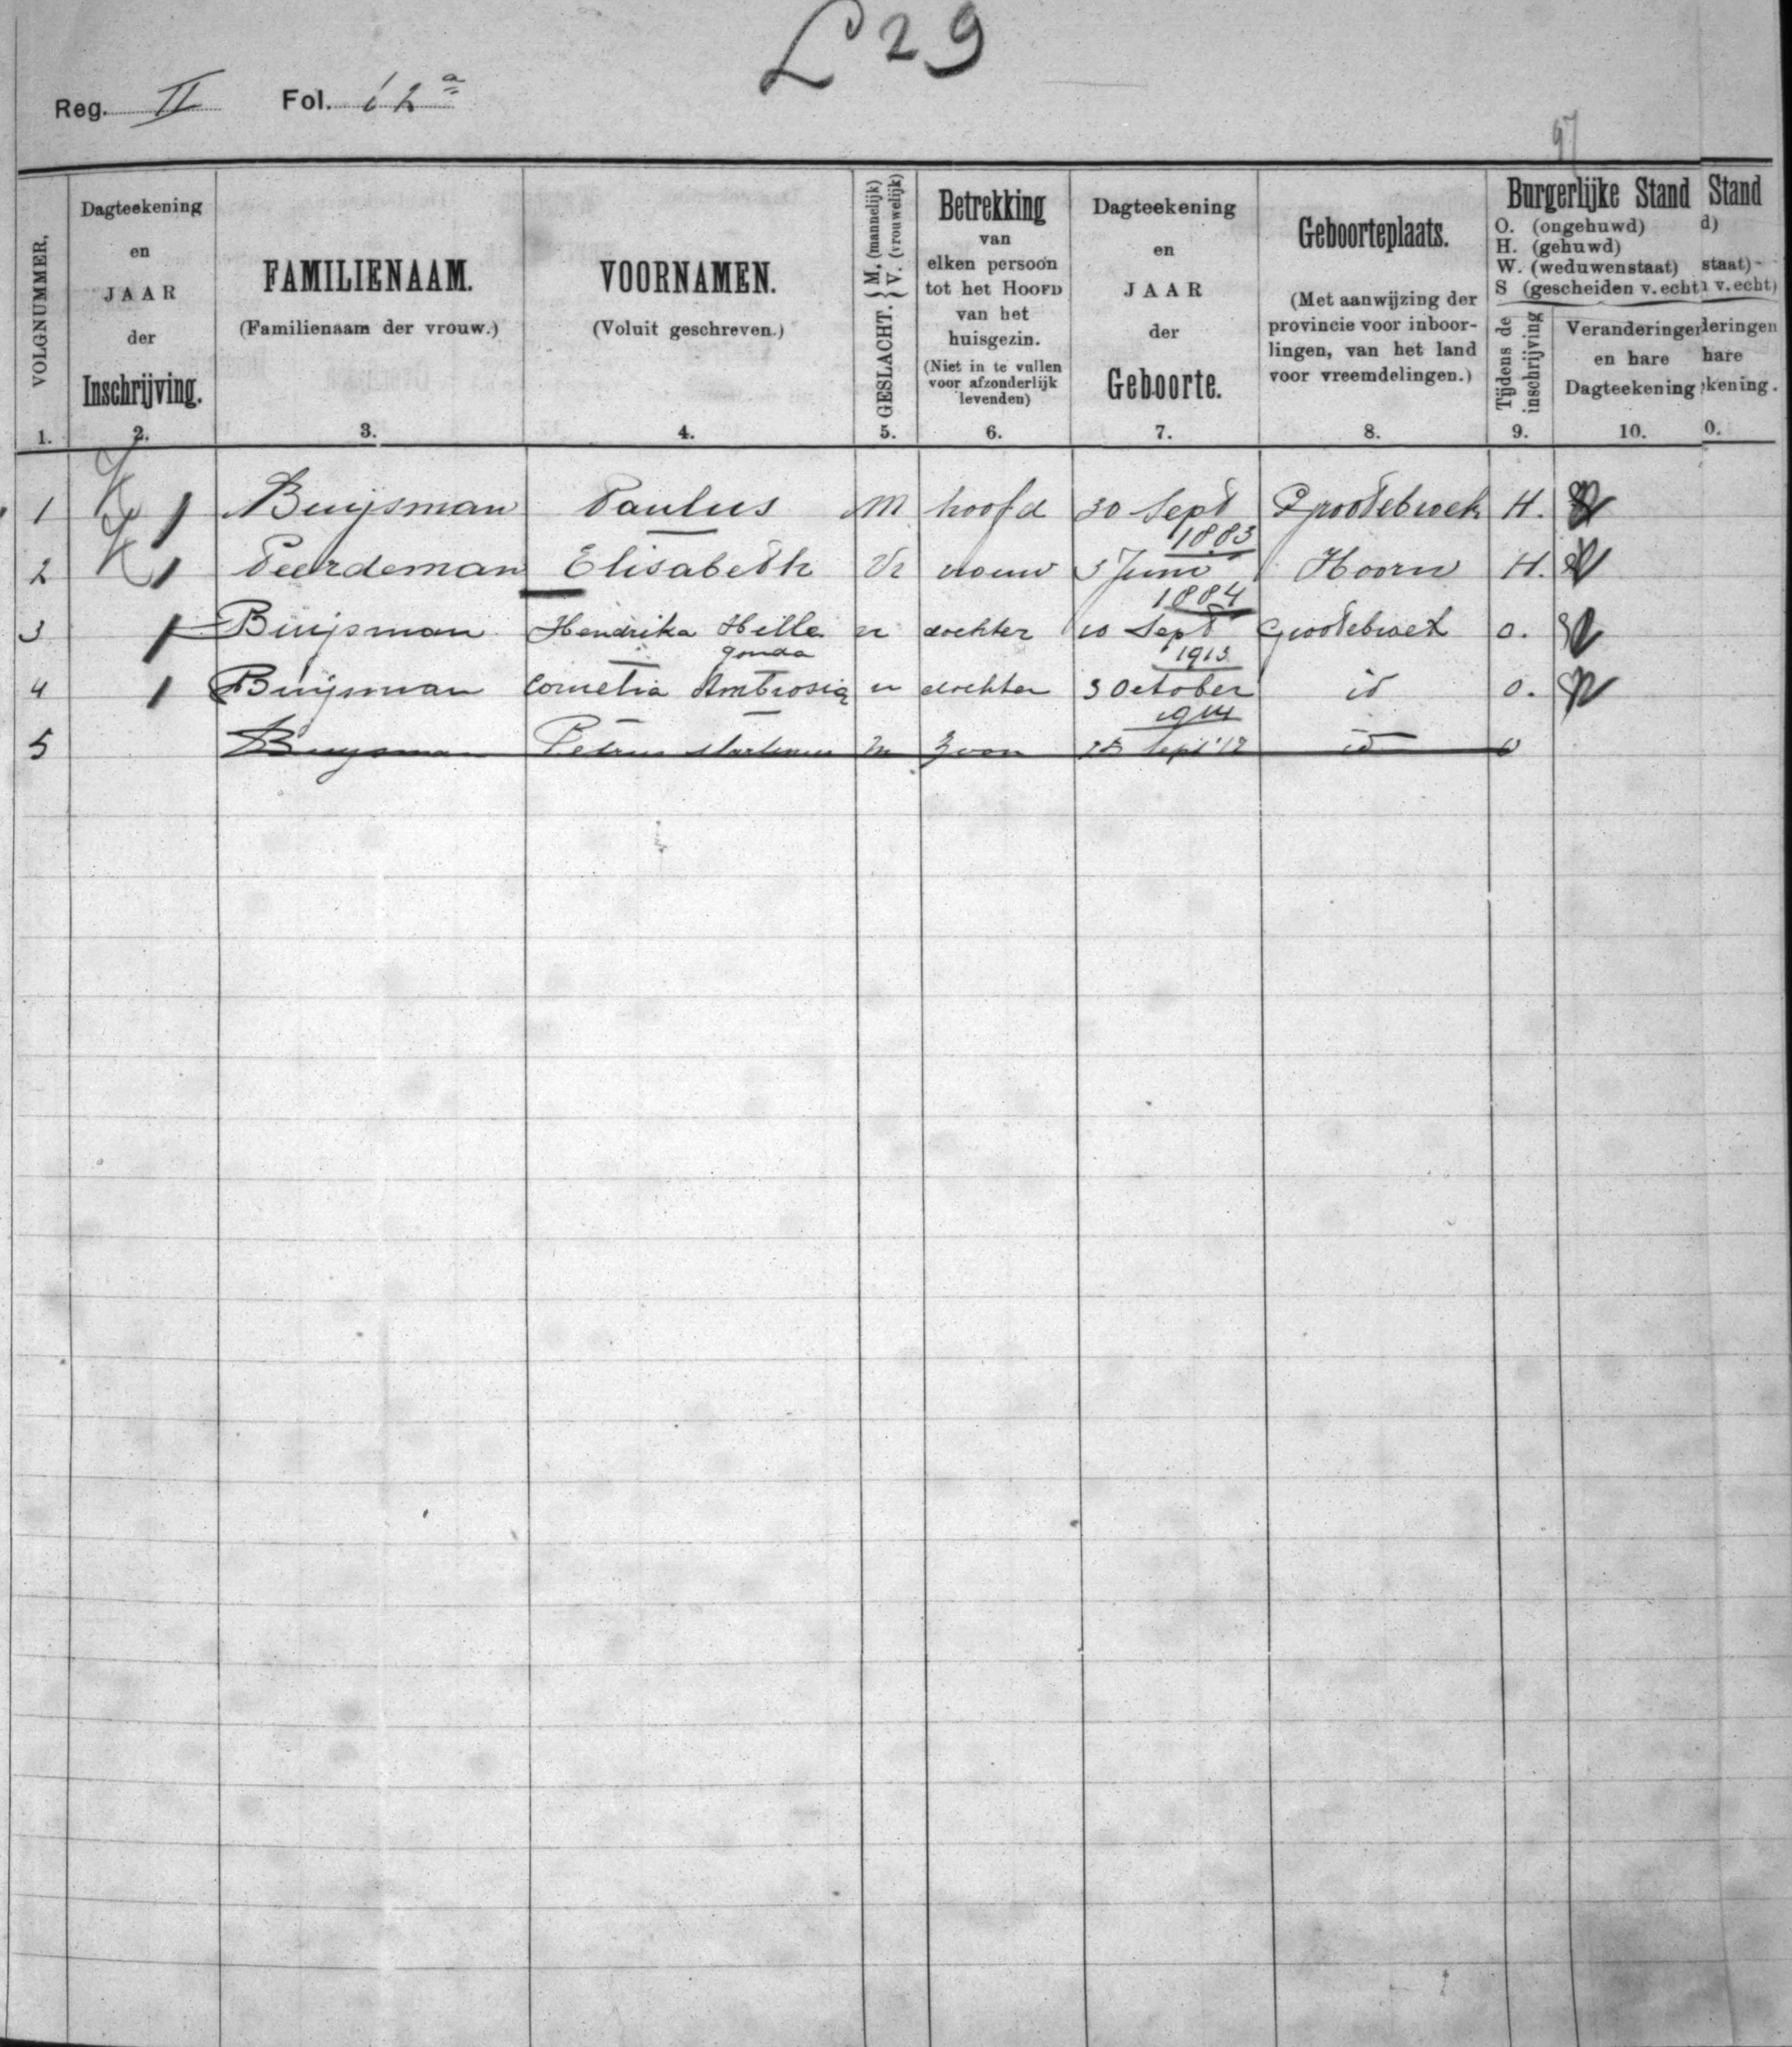 L 29
Reg. II Fol. 12a
97
VOLGNUMMER. 1.
Dagteekening en JAAR der Inschrijving. 2.
FAMILIENAAM. (Familienaam der vrouw.) 3.
VOORNAMEN. (Voluit geschreven.) 4.
GESLACHT. { M. (mannelijk) V. (vrouwelijk) 5.
Betrekking van elken persoon tot het HOOFD van het huisgezin. (Niet in te vullen voor afzonderlijk levenden) 6.
Dagteekening en JAAR der Geboorte. 7.
Geboorteplaats. (Met aanwijzing der provincie voor inboorlingen, van het land voor vreemdelingen.) 8.
Burgerlijke Stand Stand
O. (ongehuwd) d)
H. (gehuwd)
W. (weduwenstaat) staat)
S (gescheiden v. echt v. echt)
Tijdens de inschrijving 9.
Veranderingen deringen
en hare hare
Dagteekening ekening.
10. 0.
1 Buijsman Paulus M hoofd 30 Sept 1883 Grootebroek H.
2 Peerdeman Elisabeth Vr vrouw 3 Juni 1884 Hoorn H.
3 Buijsman Hendrika Hillegonda vr dochter 10 Sept 1913 Grootebroek O.
4 Buijsman Cornelia Ambrosia vr dochter 3 October 1914 id O.
5 Buijsman Petrus Martinus M Zoon Sept id O